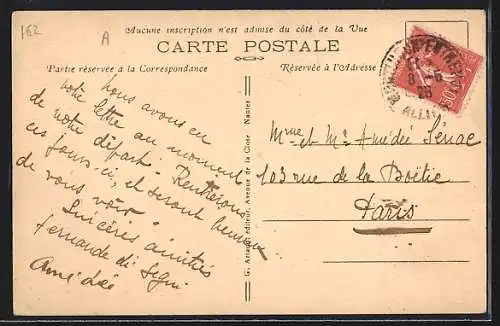 162
A
Aucune inscription n'est admise du côté de la Vue
CARTE POSTALE
Partie réservée à la Correspondance
Réservée à l'Adresse
nous avons eu
votre lettre au moment
de notre départ. Rentrerons
ces jours-ci, et seront heureux
de vous voir
Sincères amitiés
Fernande di Segni
Amédée
G. Artaud éditeur, Avenue de la Close Nantes
Mme et Mr Amédée Sénac
103 rue de la Boëtie
Paris
50
ALLIER